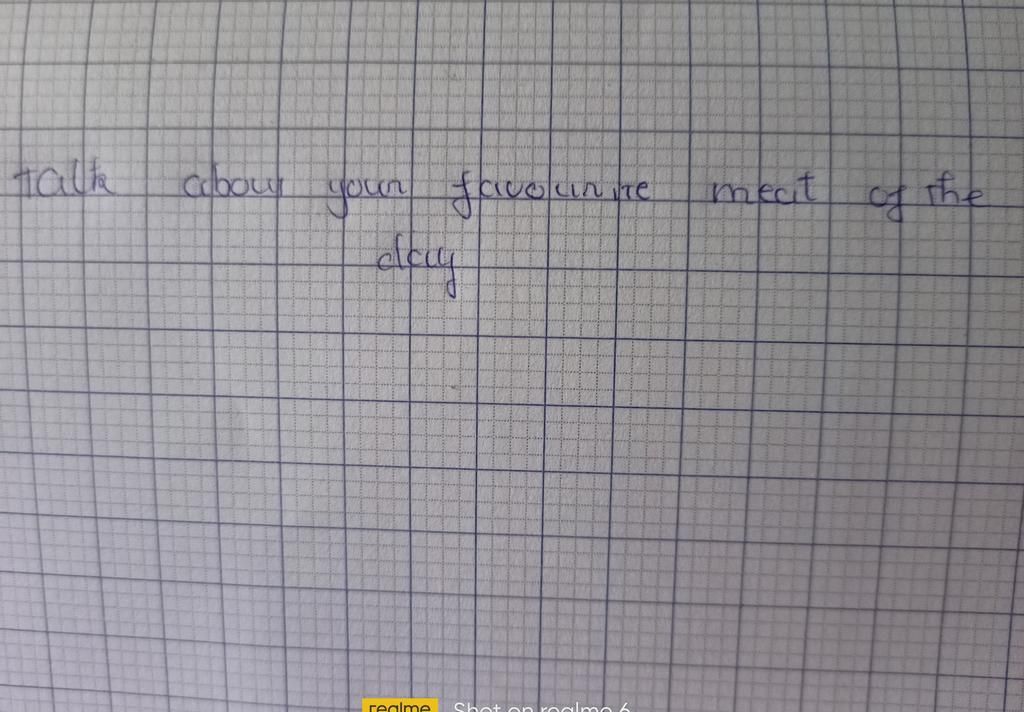 talk about your favourite meal of the
day
realme Shot on realme 6